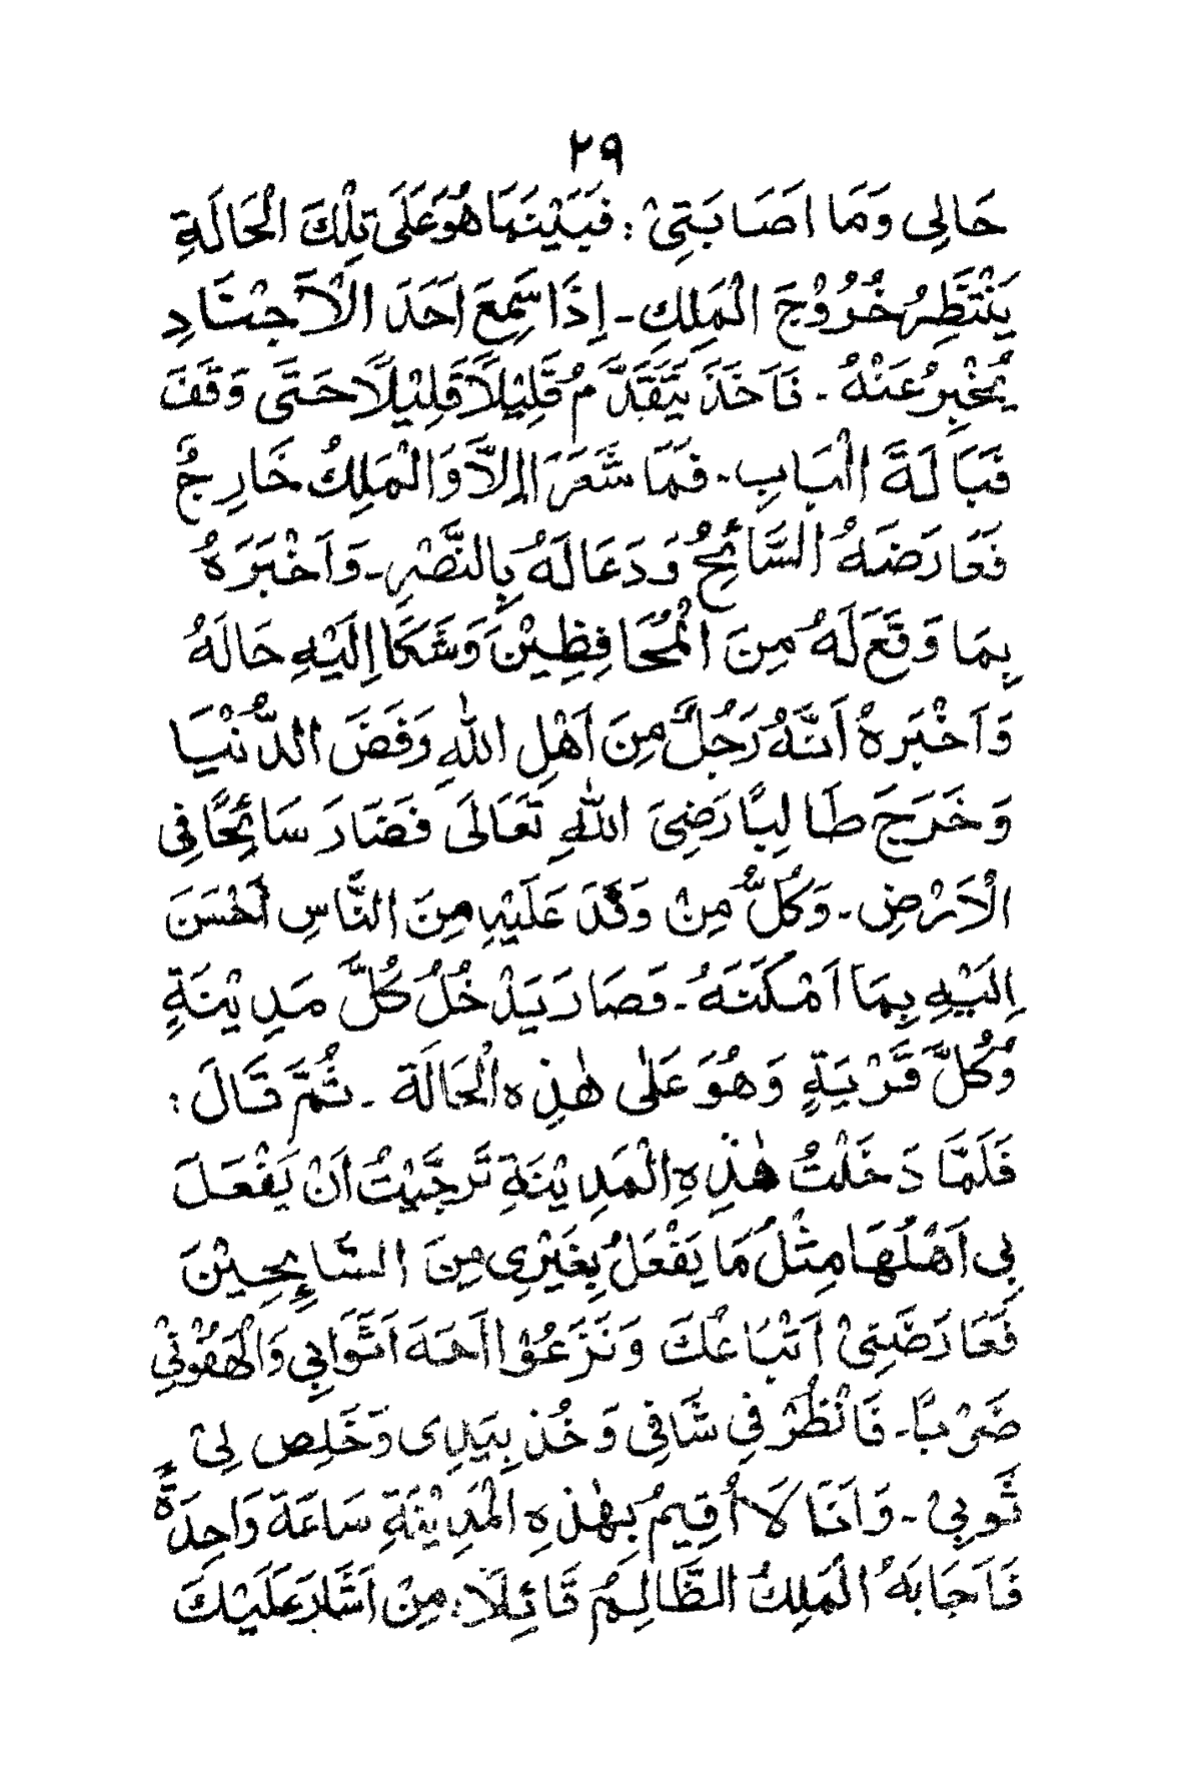 ٢٩
حَالِي وَمَا اَصَابَتِيْ : فَبَيْنَمَا هُوَ عَلَى تِلْكَ الْحَالَةِ
يَنْتَظِرُ خُرُوْجَ الْمَلِكِ - إِذَا سَمِعَ اَحَدَ الْاَجْنَادِ
يُخْبِرُ عَنْهُ - فَاَخَذَ يَتَقَدَّمُ قَلِيْلًا قَلِيْلًا حَتَّى وَقَفَ
قَبَالَةَ الْبَابِ - فَمَا شَعَرَ اِلَّا وَالْمَلِكُ خَارِجٌ
فَعَارَضَهُ السَّائِحُ وَدَعَا لَهُ بِالنَّصْرِ - وَاَخْبَرَهُ
بِمَا وَقَعَ لَهُ مِنَ الْمُحَافِظِيْنَ وَشَكَا اِلَيْهِ حَالَهُ
وَاَخْبَرهُ اَنَّهُ رَجُلٌ مِنَ اَهْلِ اللّٰهِ رَفَضَ الدُّنْيَا
وَخَرَجَ طَالِبًا رَضِيَ اللّٰهِ تَعَالَى فَصَارَ سَائِحًا فِي
الْاَرْضِ - وَكُلُّ مِنْ وَفَدَ عَلَيْهِ مِنَ النَّاسِ اَحْسَنَ
اِلَيْهِ بِمَا اَمْكَنَهُ - فَصَارَ يَدْخُلُ كُلَّ مَدِيْنَةٍ
وَكُلَّ قَرْيَةٍ وَهُوَ عَلٰى هٰذِهِ الْحَالَةَ - ثُمَّ قَالَ :
فَلَمَّا دَخَلْتُ هٰذِهِ الْمَدِيْنَةِ تَرَجَّيْتُ اَنْ يَفْعَلَ
بِي اَهْلُهَا مِثْلُ مَا يَفْعَلُ بِغَيْرِي مِنَ السَّايِحِيْنَ
فَعَارَضَنِيْ اَتْبَاعُكَ وَنَزَعُوْا اَحَدَ اَثَوَابِي وَالْهَفُوْنِي
ضَرْبًا - فَانْظُرْ فِي شَافِي وَخُذ بِيَدِى وَخَلِص لِيْ
ثَوبِيْ - وَاَنَا لَا اُقِيمُ بِهٰذِهِ الْمَدِيْنَةِ سَاعَةَ وَاحِدَةً
فَاَجَابَهُ الْمَلِكُ الظَّالِمُ قَائِلًا : مِنْ اَشَارَ عَلَيْكَ